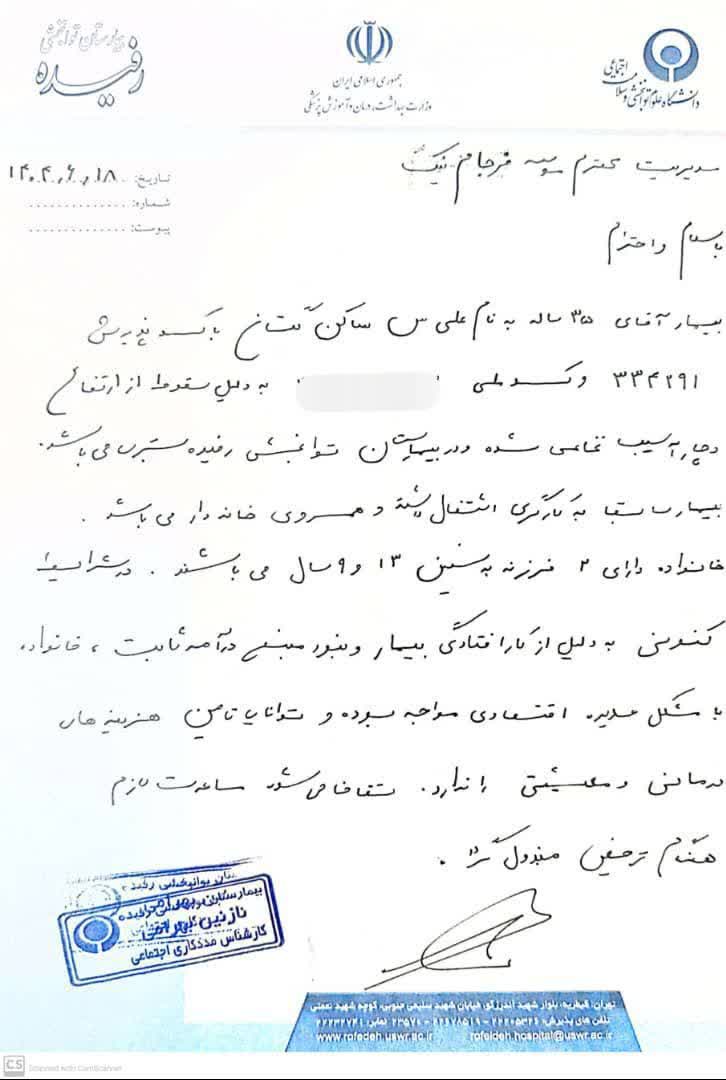 بیمارستان توانبخشی
رفیده
جمهوری اسلامی ایران
وزارت بهداشت، درمان و آموزش پزشکی
دانشگاه علوم توانبخشی و سلامت اجتماعی
تاریخ: ۱۴۰۴،۶،۱۸
شماره: ..............
پیوست: ..............
مدیریت محترم موسسه فرجام نیک
با سلام و احترام
بیمار آقای ۳۵ ساله به نام علی س ساکن با کد پذیرش
۳۳۴۲۹۱ و کد ملی به دلیل سقوط از ارتفاع
دچار آسیب نخاعی شده و در بیمارستان توانبخشی رفیده بستری می باشد.
بیمار سابقا به کارگری اشتغال داشته و همسروی خانه دار می باشد.
خانواده دارای ۲ فرزند به سنین ۱۳ و ۹ سال می باشند. در شرایط
کنونی به دلیل از کارافتادگی بیمار و نبود منبع درآمد ثابت، خانواده
با مشکل عدیده اقتصادی مواجه بوده و توانایی تامین هزینه های
درمانی و معیشتی را ندارد. تقاضا می شود مساعدت لازم
هنگام ترخیص مبذول گردد.
بیمارستان توانبخشی رفیده
نازنین بهرامی
کارشناس مددکاری اجتماعی
تهران: قیطریه، بلوار شهید اندرزگو، خیابان شهید سلیمی جنوبی، کوچه شهید نعمتی
تلفن های پذیرش: ۲۲۲۰۵۳۲۶ - ۲۲۶۷۸۵۱۹ - ۲۳۵۷۰ نمابر: ۲۲۲۳۲۷۴۱
www.rofedeh.uswr.ac.ir rofeideh.hospital@uswr.ac.ir
CS Scanned with CamScanner